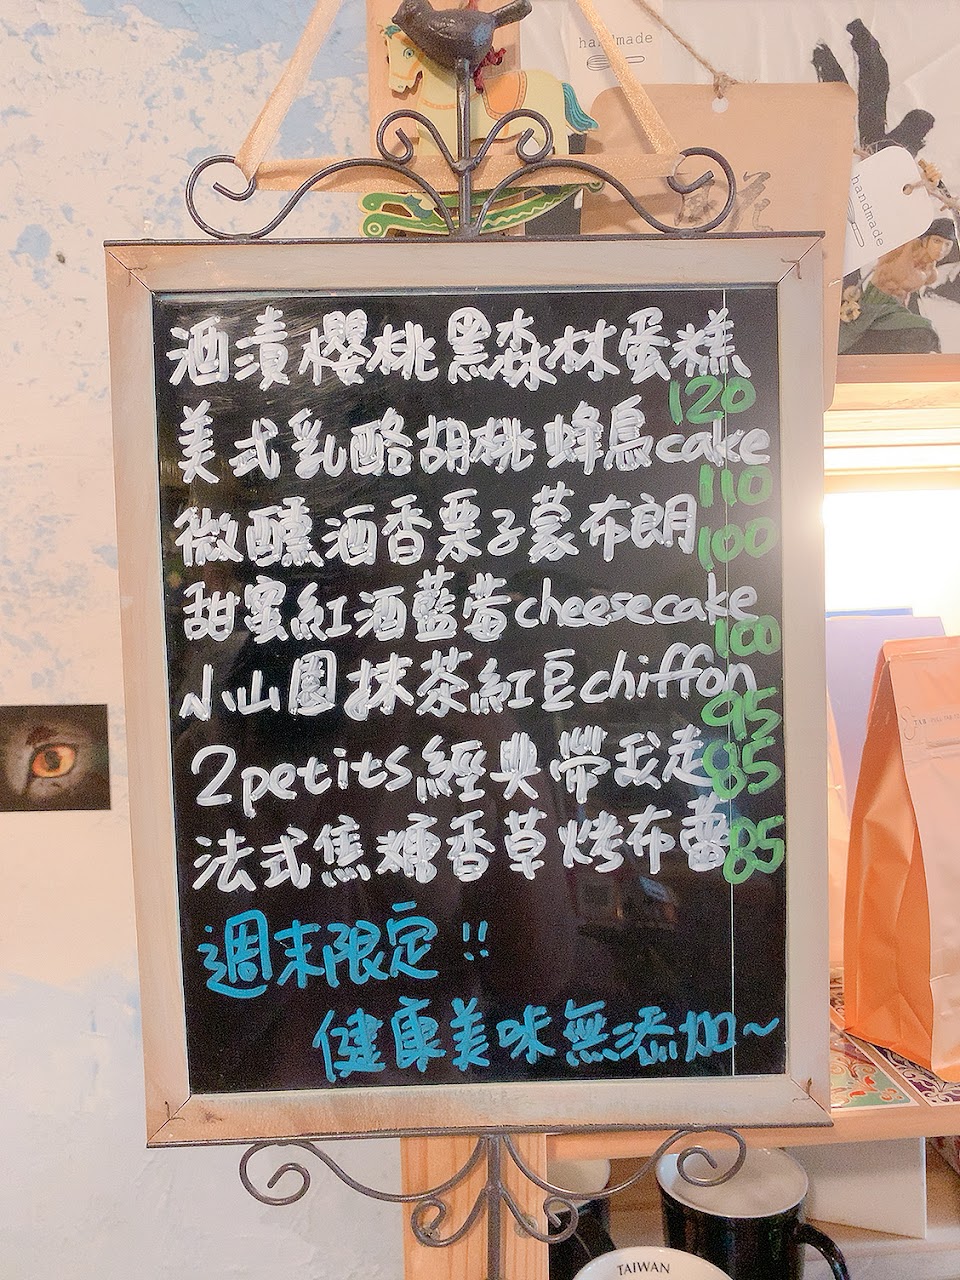 handmade
handmade
酒漬櫻桃黑森林蛋糕 120
美式乳酪胡桃蜂鳥cake 110
微醺酒香栗子蒙布朗 100
甜蜜紅酒藍莓cheesecake 100
小山園抹茶紅豆chiffon 95
2petits經典帶我走 85
法式焦糖香草烤布蕾 85
週末限定!!
健康美味無添加~
TAIWAN